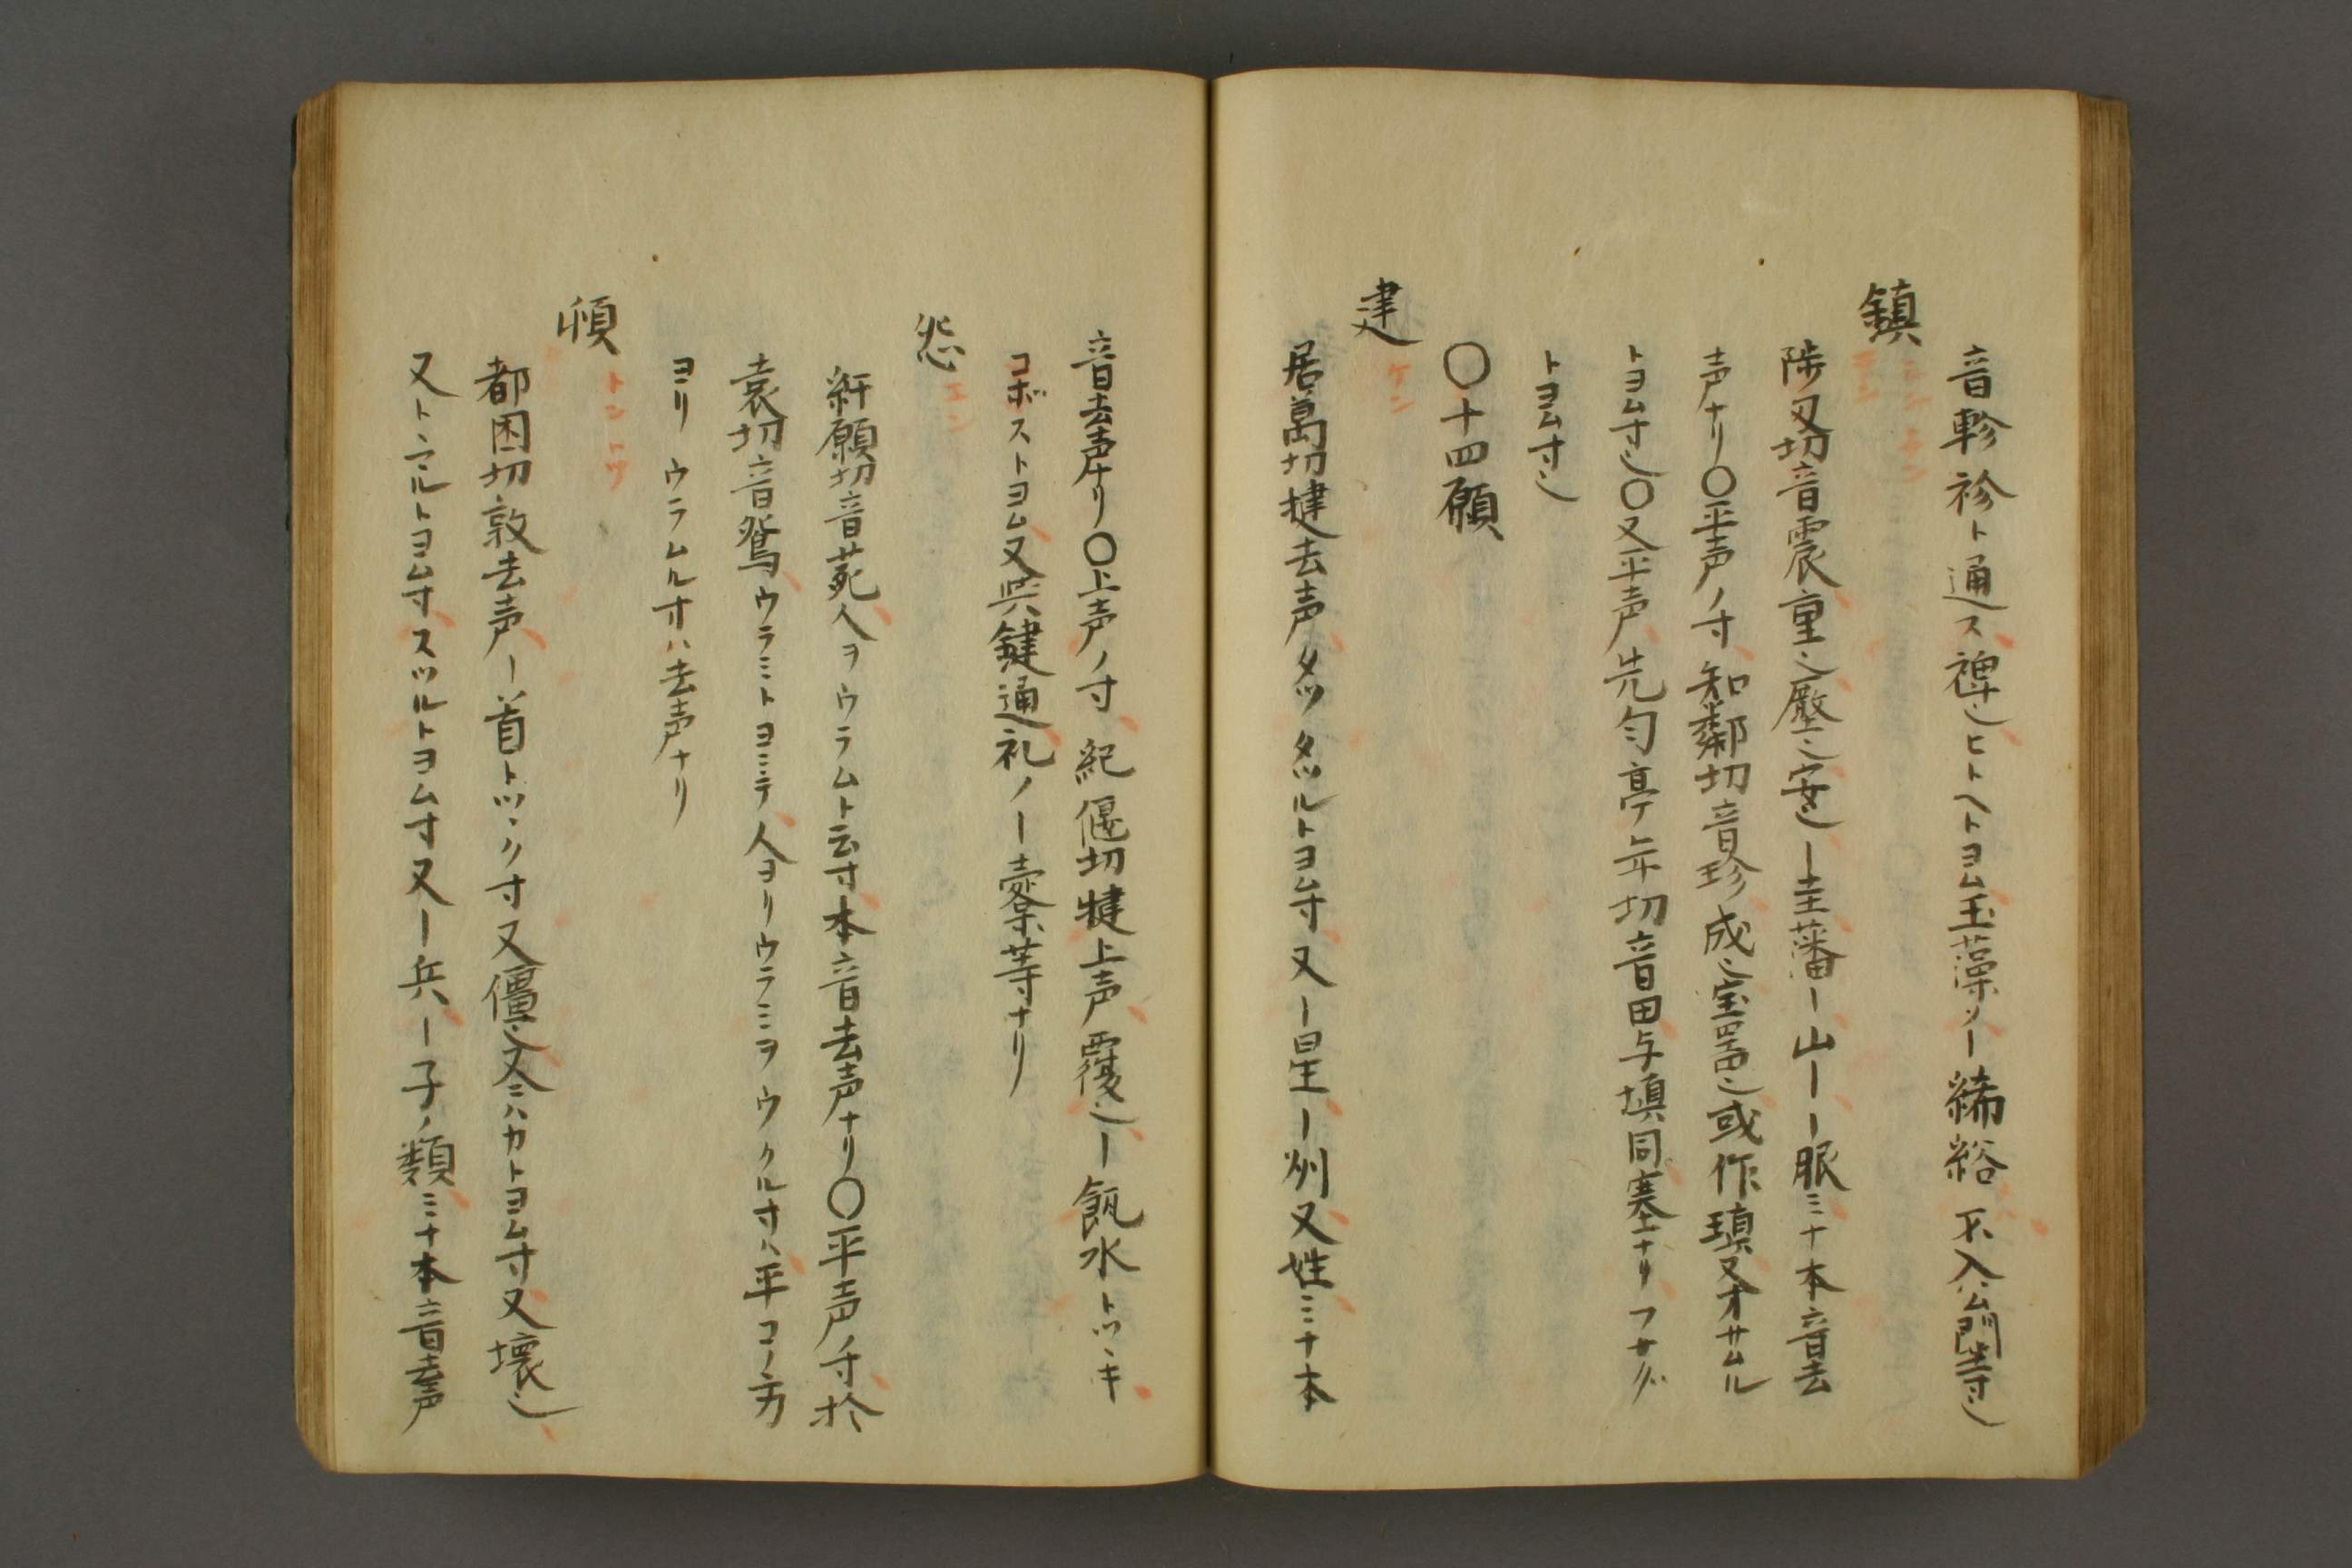 音軫袗ト通ス襌也ヒトヘトヨム玉藻ノ｜絺綌不入公門等也
鎮
チン
陟刄切音震重也壓也安也｜圭藩｜山｜｜服ミナ本音去
声ナリ〇平声ノ寸知鄰切音珍成也宝器也或作瑱又オサムル
トヨム寸也〇又平声先匀亭年切音田与填同塞ナリフサグ
トヨム寸也
〇十四願
建
ケン
居萬切揵去声タツタツルトヨム寸又｜星｜州又姓ミナ本
音去声ナリ〇上声ノ寸紀偃切犍上声覆也｜瓴水トツヾキ
コボストヨム又與鍵通礼ノ｜櫜等ナリ
怨
エン
紆願切音苑人ヲウラムト云寸本音去声ナリ〇平声ノ寸於
袁切音鴛ウラミトヨミテ人ヨリウラミヲウクル寸ハ平コノ方
ヨリウラムル寸ハ去声ナリ
頓
トントツ
都困切敦去声｜首トツヾク寸又僵也又ニハカトヨム寸又壊也
又トヾマルトヨム寸スツルトヨム寸又｜兵｜子ノ類ミナ本音去声